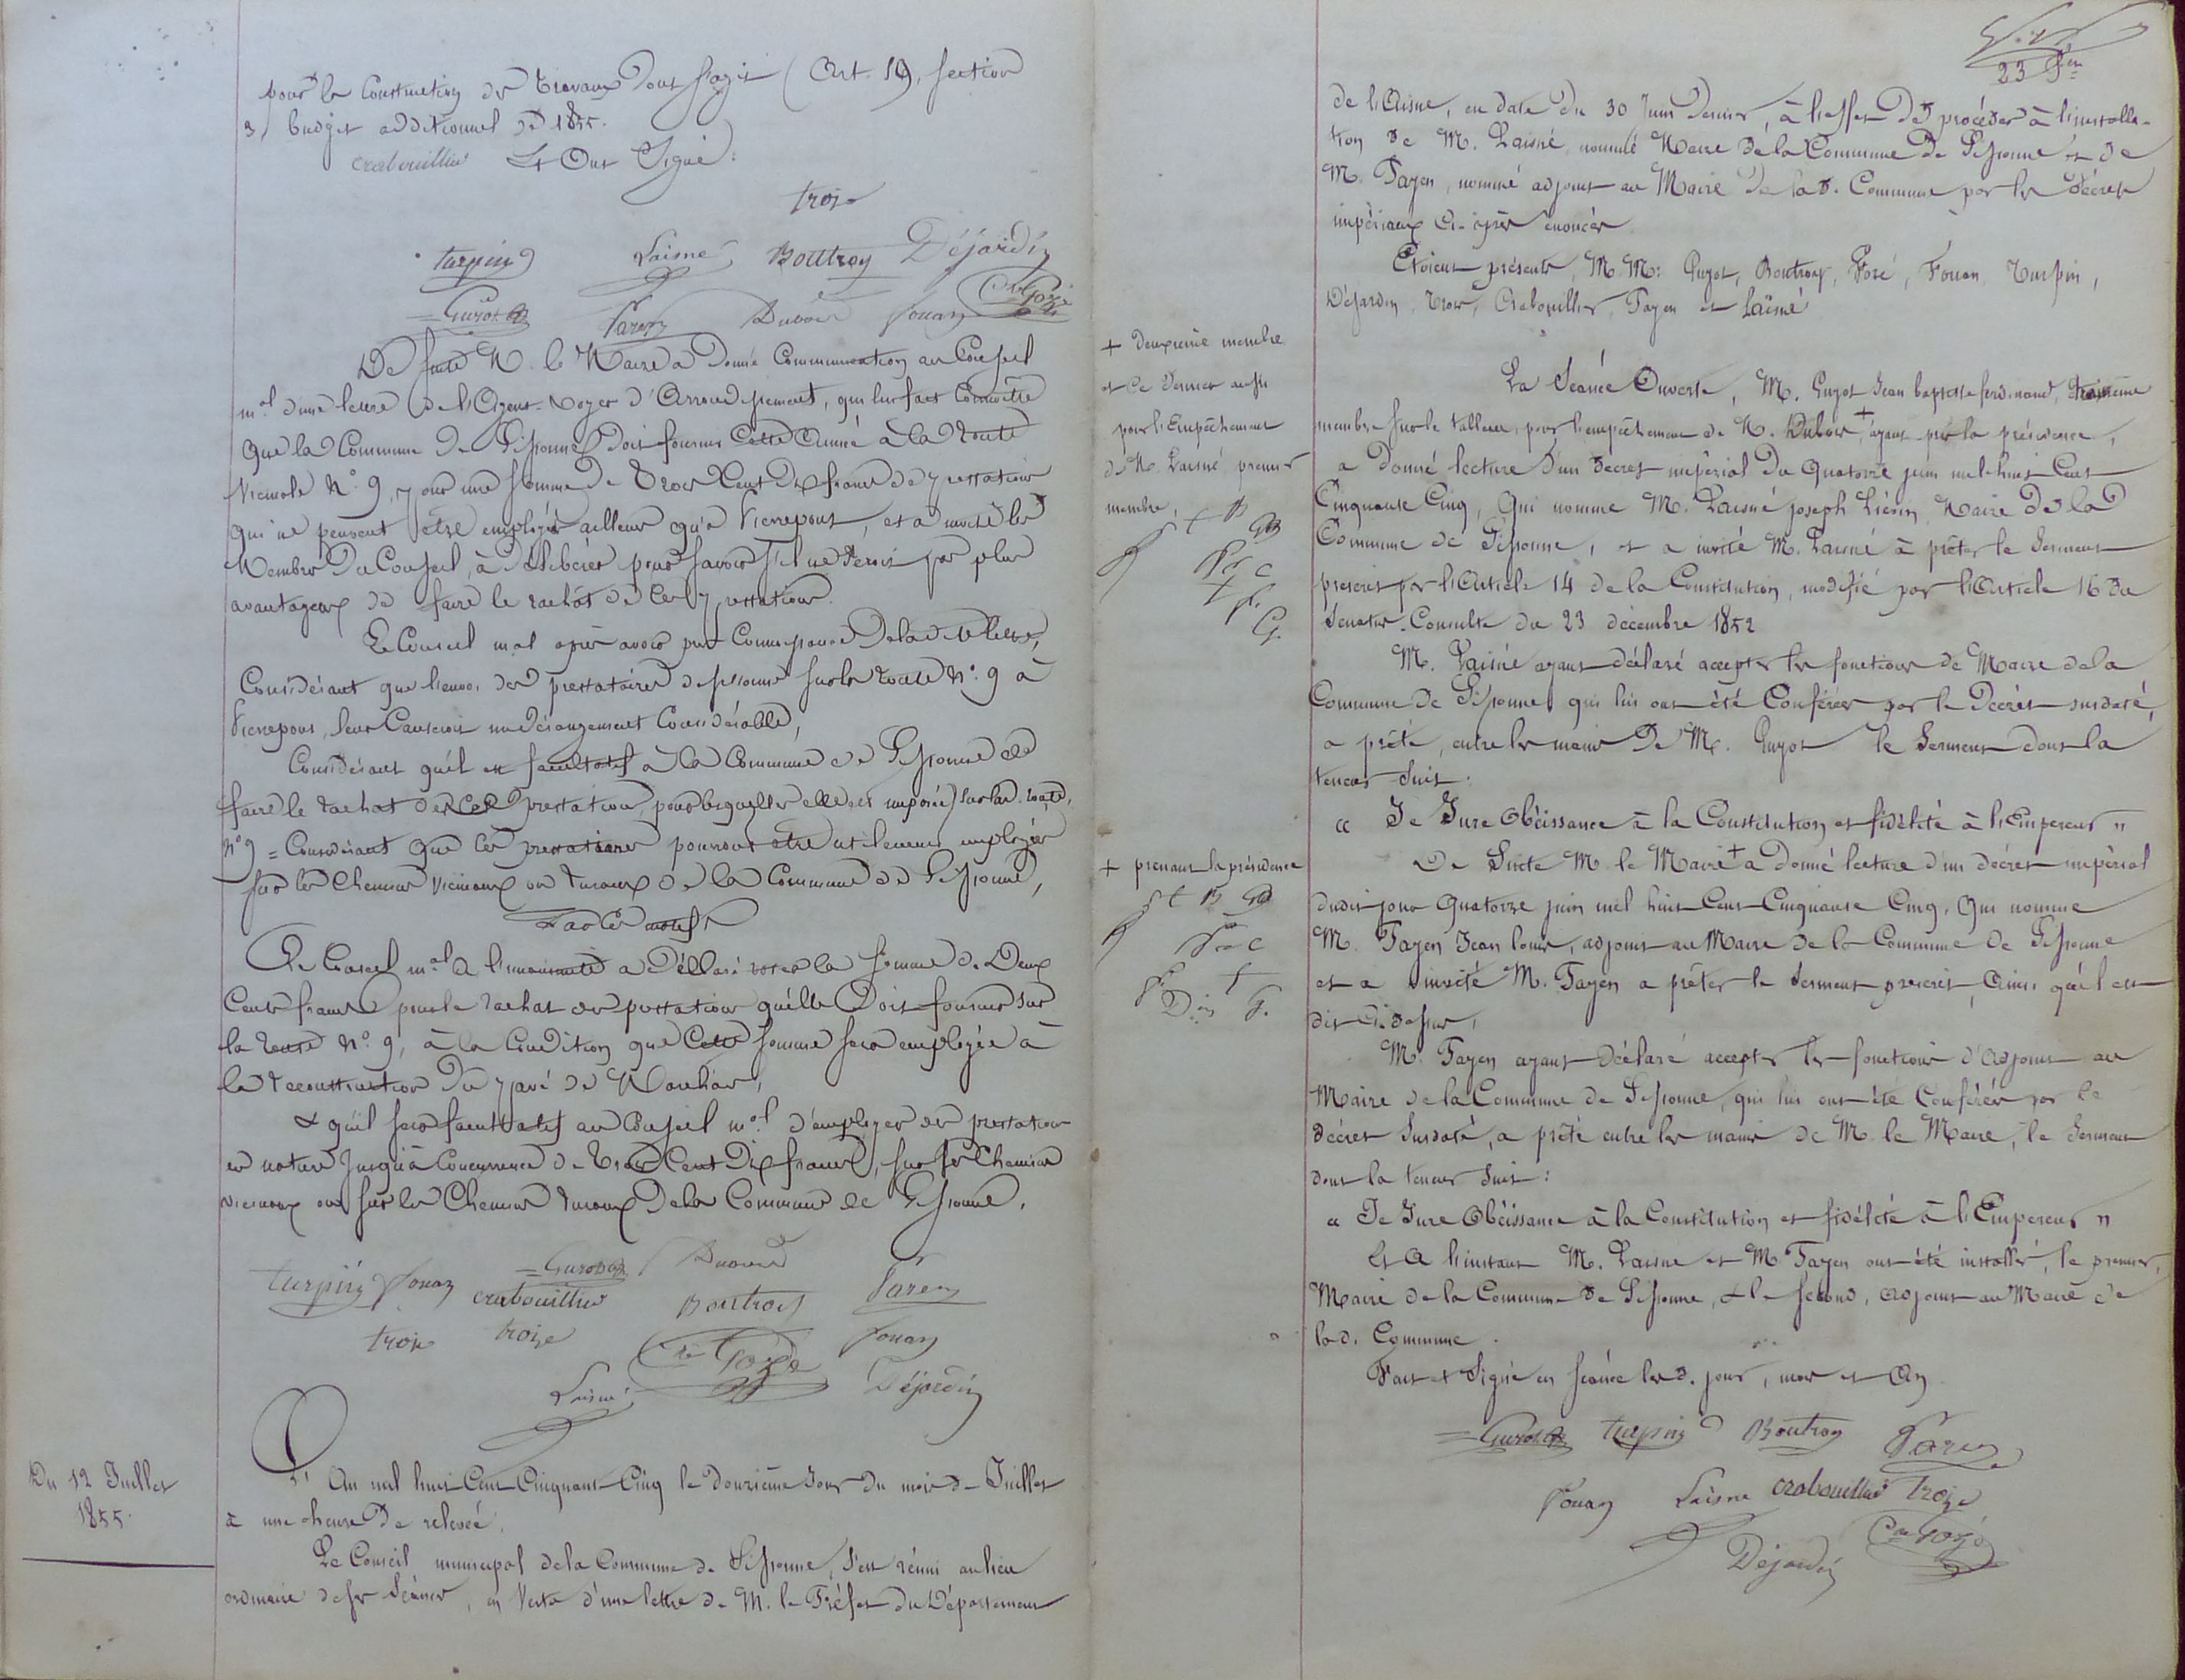 pour la Construction des travaux dont s'agit (Art. 19, section
3) budget additionnel de 1855.
crabouillier Et Ont Signé:
troje
turpin Laisné Bouttroy Déjardin
Guyot Payen Dubois fouan Gozé
De suite M. le Maire a donné Communication au Conseil
m.al d'une lettre de l'Agent-Voyer d'Arrondissement, qui lui fait Connoître
que la Commune de Sissonne doit fournir cette année à la route
Vicinale N.o 9, pour une somme de Trois Cent dix francs de prestations
qui ne peuvent être employés ailleurs qu'à Pierrepont, et a invité les
Membres du Conseil, à délibérer pour savoir s'il ne seroit pas plus
avantageux de faire le rachat de ces prestations.
Le Conseil m.al après avoir pris Connaissance de la d.te lettre,
Considérant que l'envoi des prestataires de Sissonne sur la route N.o 9 à
Pierrepont, leur Causeroit un dérangement Considérable,
Considérant qu'il est facultatif à la Commune de Sissonne de
faire le rachat des prestations pour lesquelles elle est imposée sur la d. route
n.o 9 = Considérant que les prestations pourront être utilement employées
sur les Chemins Vicinaux ou ruraux de la Commune de Sissonne,
Par ces motifs
Le Conseil m.al à l'unanimité a déclaré voter la somme de Deux
Cents francs pour le rachat des prestations qu'elle doit fournir sur
la route N.o 9, à la Condition que cette somme sera employée à
la reconstruction du pavé de
& qu'il sera facultatif au Conseil m.al d'employer des prestations
en nature jusqu'à Concurrence de Trois Cent Dix francs, sur les Chemins
vicinaux ou sur les Chemins ruraux de la Commune de Sissonne.
turpin fouan Guyot Dubois
crabouillier Bouttroy Payen
troje troje Gozé fouan
Laisné Déjardin
Du 12 Juillet
1855.
L'An mil huit Cent Cinquante Cinq le douzième Jour du mois de Juillet
à une heure de relevée.
Le Conseil municipal de la Commune de Sissonne, s'est réuni au lieu
ordinaire de ses Séances, en Vertu d'une lettre de M. le Préfet du Département
23
de l'Aisne, en date du 30 Juin dernier, à l'effet de procéder à l'installa-
tion de M. Laisné, nommé Maire de la Commune de Sissonne et de
M. Payen, nommé adjoint au Maire de la d. Commune par les décrets
impériaux ci-après énoncés.
Etoient présents, M.M: Guyot, Bouttroy, Gozé, Fouan, Turpin,
Déjardin, Troje, Crabouillier, Payen et Laisné
+ deuxième membre
et ce dernier aussi
pour l'Empêchement
de M. Laisné premier
membre,
La Séance Ouverte, M. Guyot Jean baptiste ferdinand, troisième
membre sur le tableau, pour l'empêchement de M. Dubois,+ ayant pris la présidence,
a donné lecture d'un décret impérial du Quatorze juin mil huit Cent
Cinquante Cinq, Qui nomme M. Laisné joseph Liévin, Maire de la
Commune de Sissonne, et a invité M. Laisné à prêter le Serment
prescrit par l'Article 14 de la Constitution, modifié par l'Article 16 du
Senatus-Consulte du 23 décembre 1852
M. Laisné ayant déclaré accepter les fonctions de Maire de la
Commune de Sissonne qui lui ont été Conférées par le Décret susdaté,
a prêté, entre les mains de M. Guyot le Serment dont la
teneur suit:
« Je Jure Obéissance à la Constitution et fidélité à l'Empereur "
+ prenant la présidence
De Suite M. le Maire+ a donné lecture d'un décret impérial
dudit jour Quatorze juin mil huit Cent Cinquante Cinq, Qui nomme
M. Payen Jean louis, adjoint au Maire de la Commune de Sissonne
et a invité M. Payen a prêter le Serment prescrit, Ainsi qu'il est
dit Ci-dessus,
M. Payen ayant déclaré accepter les fonctions d'Adjoint au
Maire de la Commune de Sissonne, qui lui ont été Conférées par le
décret Susdaté, a prêté entre les mains de M. le Maire, le Serment
dont la teneur Suit:
« Je Jure Obéissance à la Constitution et fidélité à l'Empereur "
Et A l'instant M. Laisné et M. Payen ont été installés, le premier,
Maire de la Commune de Sissonne, & le Second, Adjoint au Maire de
la d. Commune.
Fait et Signé en séance les d. jour, mois et An
Guyot turpin Bouttroy Payen
fouan Laisné crabouillier Troje
Déjardin Gozé